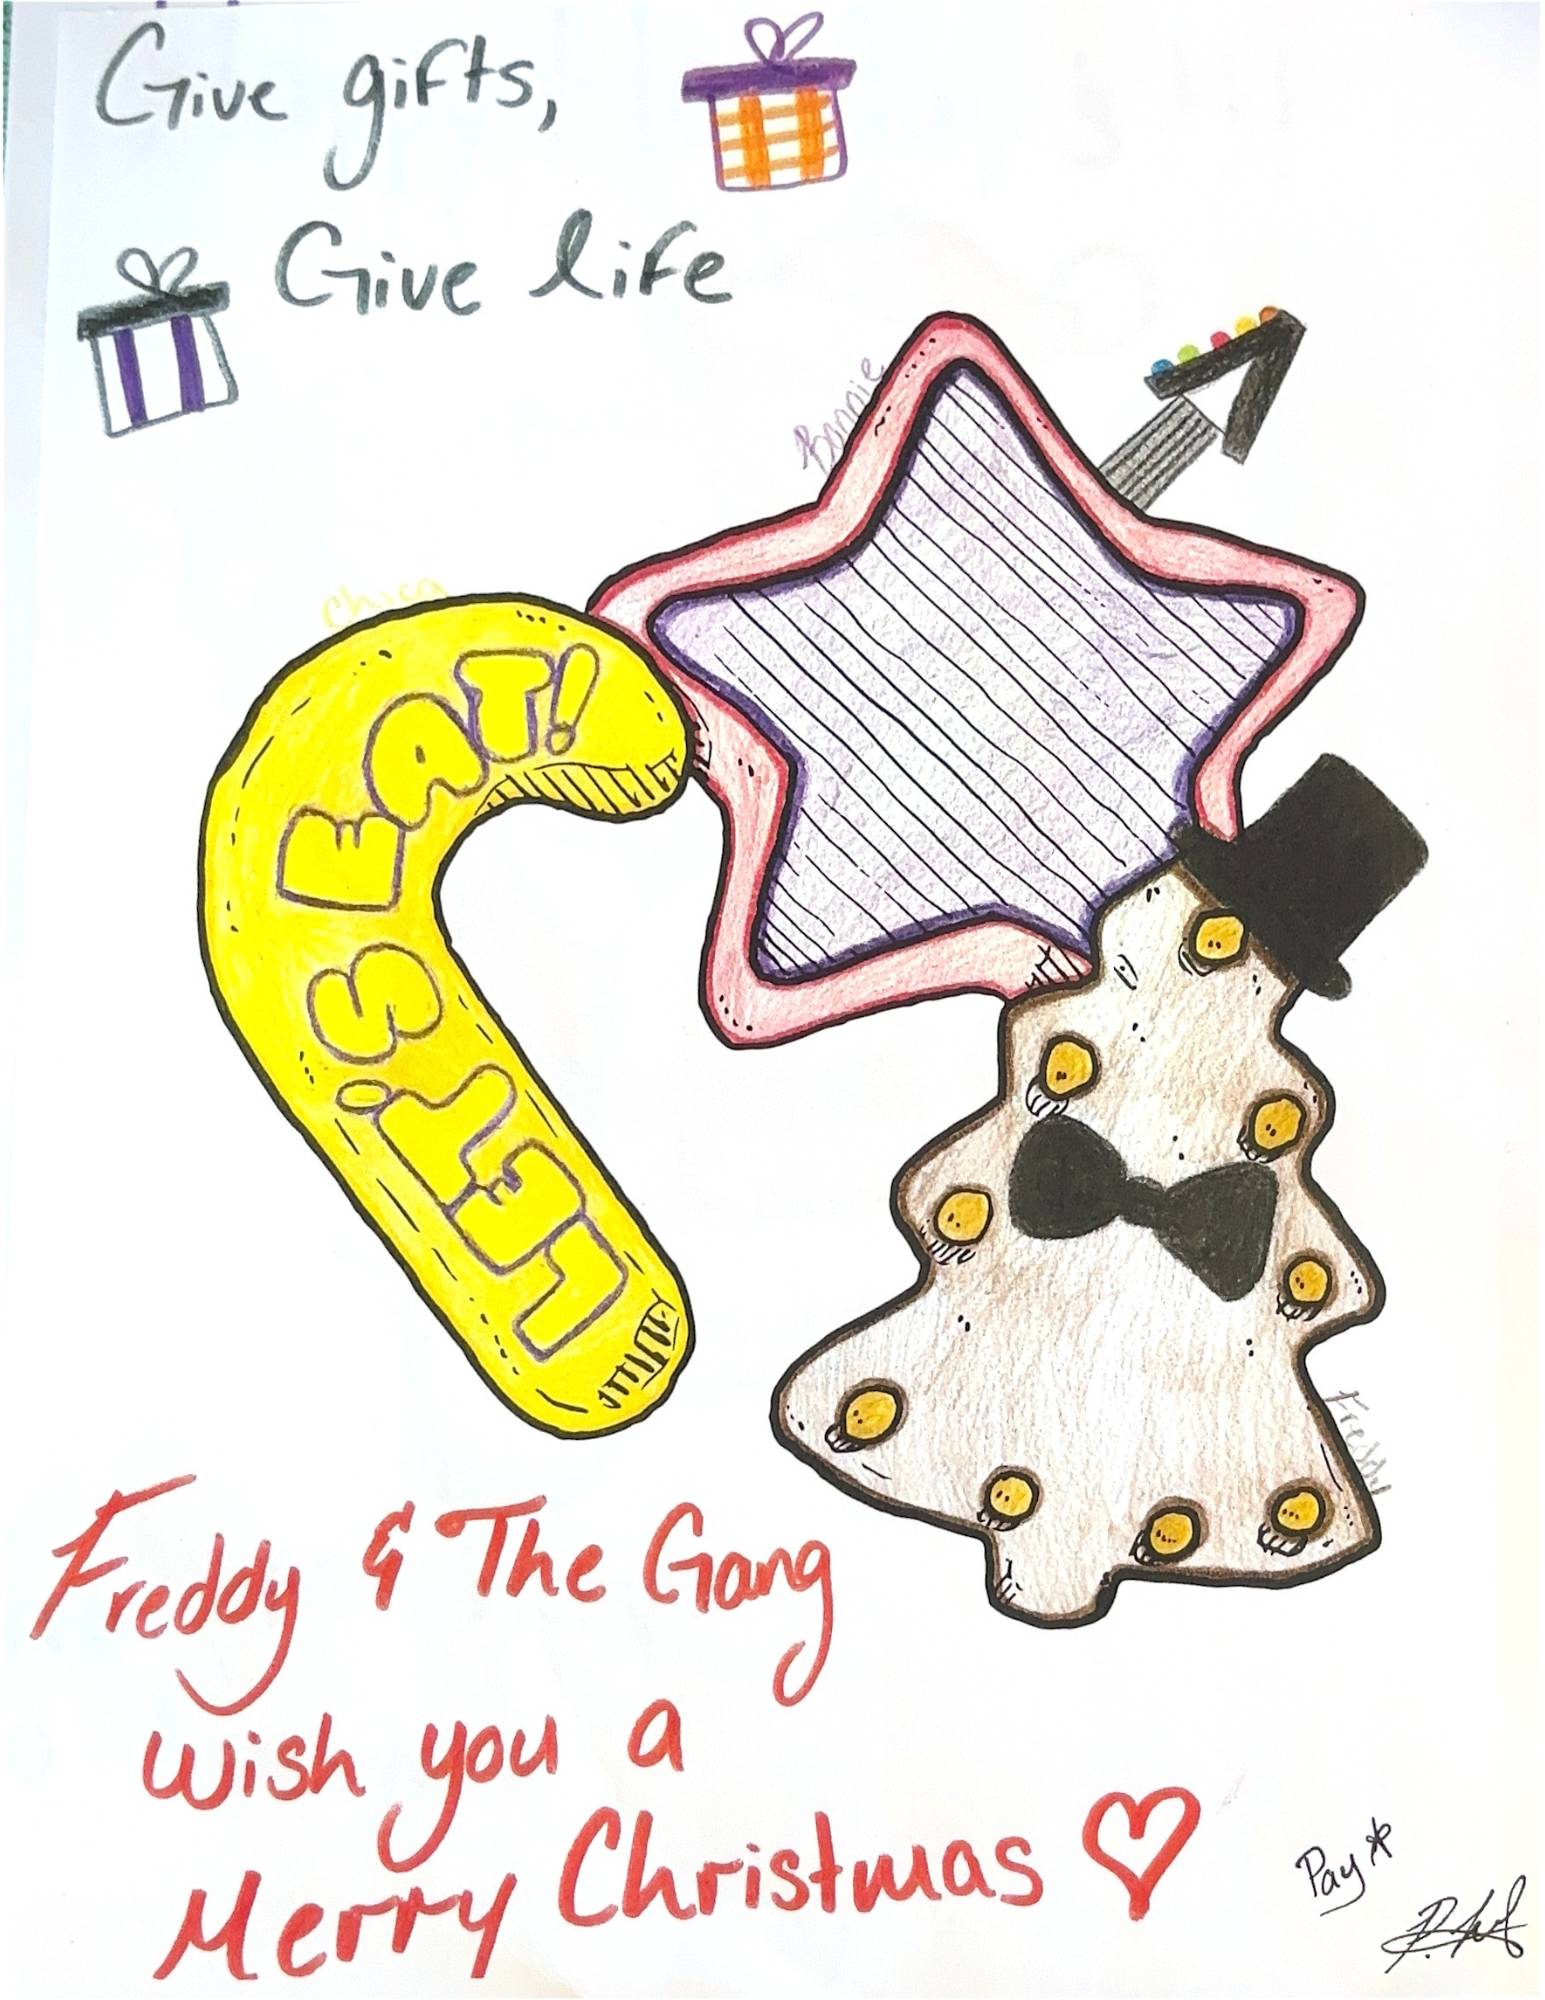 Give gifts,
Give life
Bonnie
Chica
LET'S EAT!
Freddy
Freddy & The Gang
wish you a
Merry Christmas
Pay*